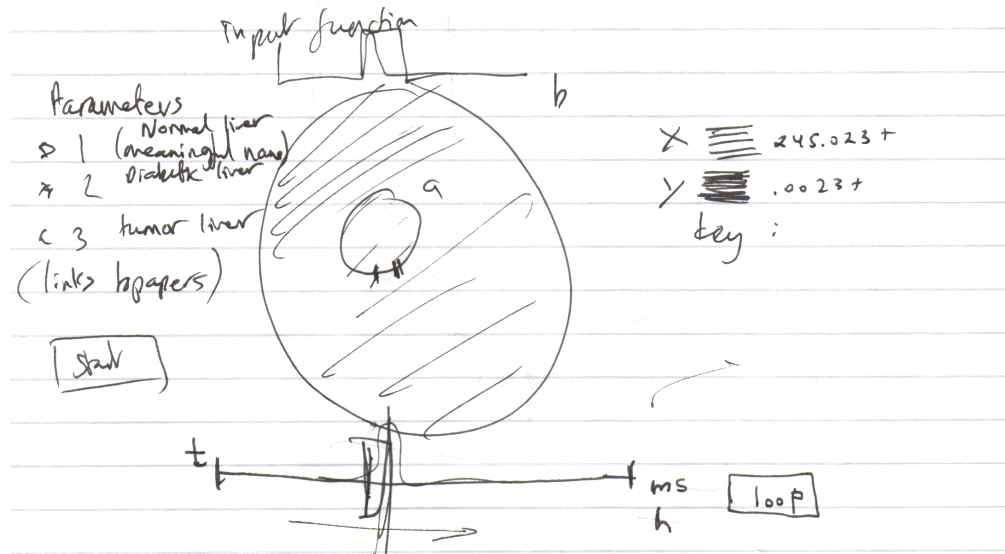 Input function
b
Parameters
1 Normal liver
(meaningful name)
2 Diabetic liver
3 tumor liver
(links to papers)
a
X 245.023+
Y .0023+
key :
Start
t
ms
h
loop